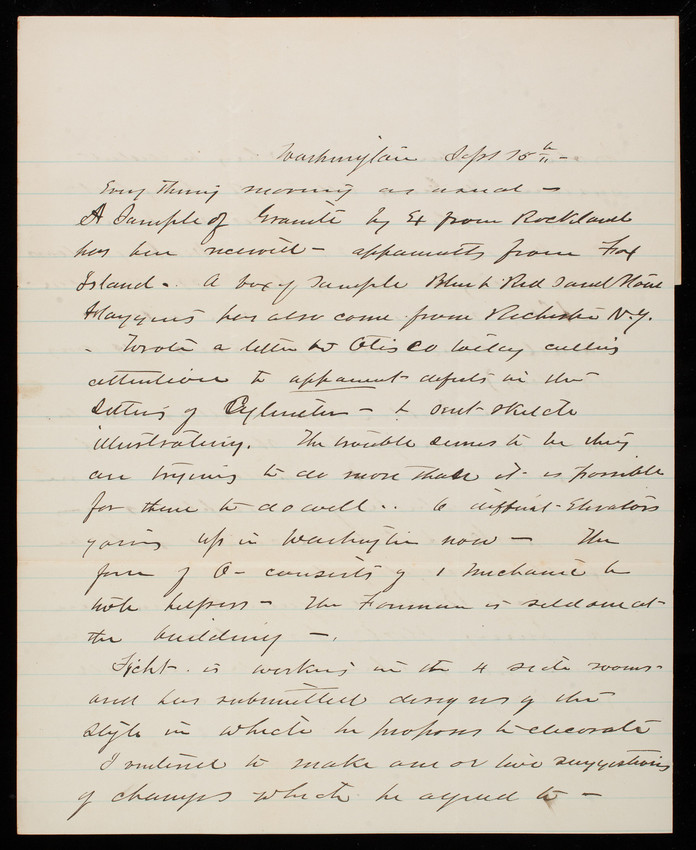 Washington Sept 15th –
Every thing moving as usual –
A Sample of Granite by Ex from Rockland
has been received – apparently from Fox
Island –. A box of Sample Black Red Sand Stone
has also come from Rochester N.Y.
– Wrote a letter to Otis Co today calling
attention to apparent defects in the
Setting of Cylinder – & sent sketch
illustrating. The trouble seems to be they
are trying to do more than it is possible
for them to do well.. 6 different Elevators
going up in Washington now – The
force of O – consists of 1 Mechanic &
helpers – The Foreman is seldom at
the building –.
is working in the 4 side rooms –
and has submitted designs of the
style in which he proposes to decorate
I ventured to make one or two suggestions
of changes which he agreed to –